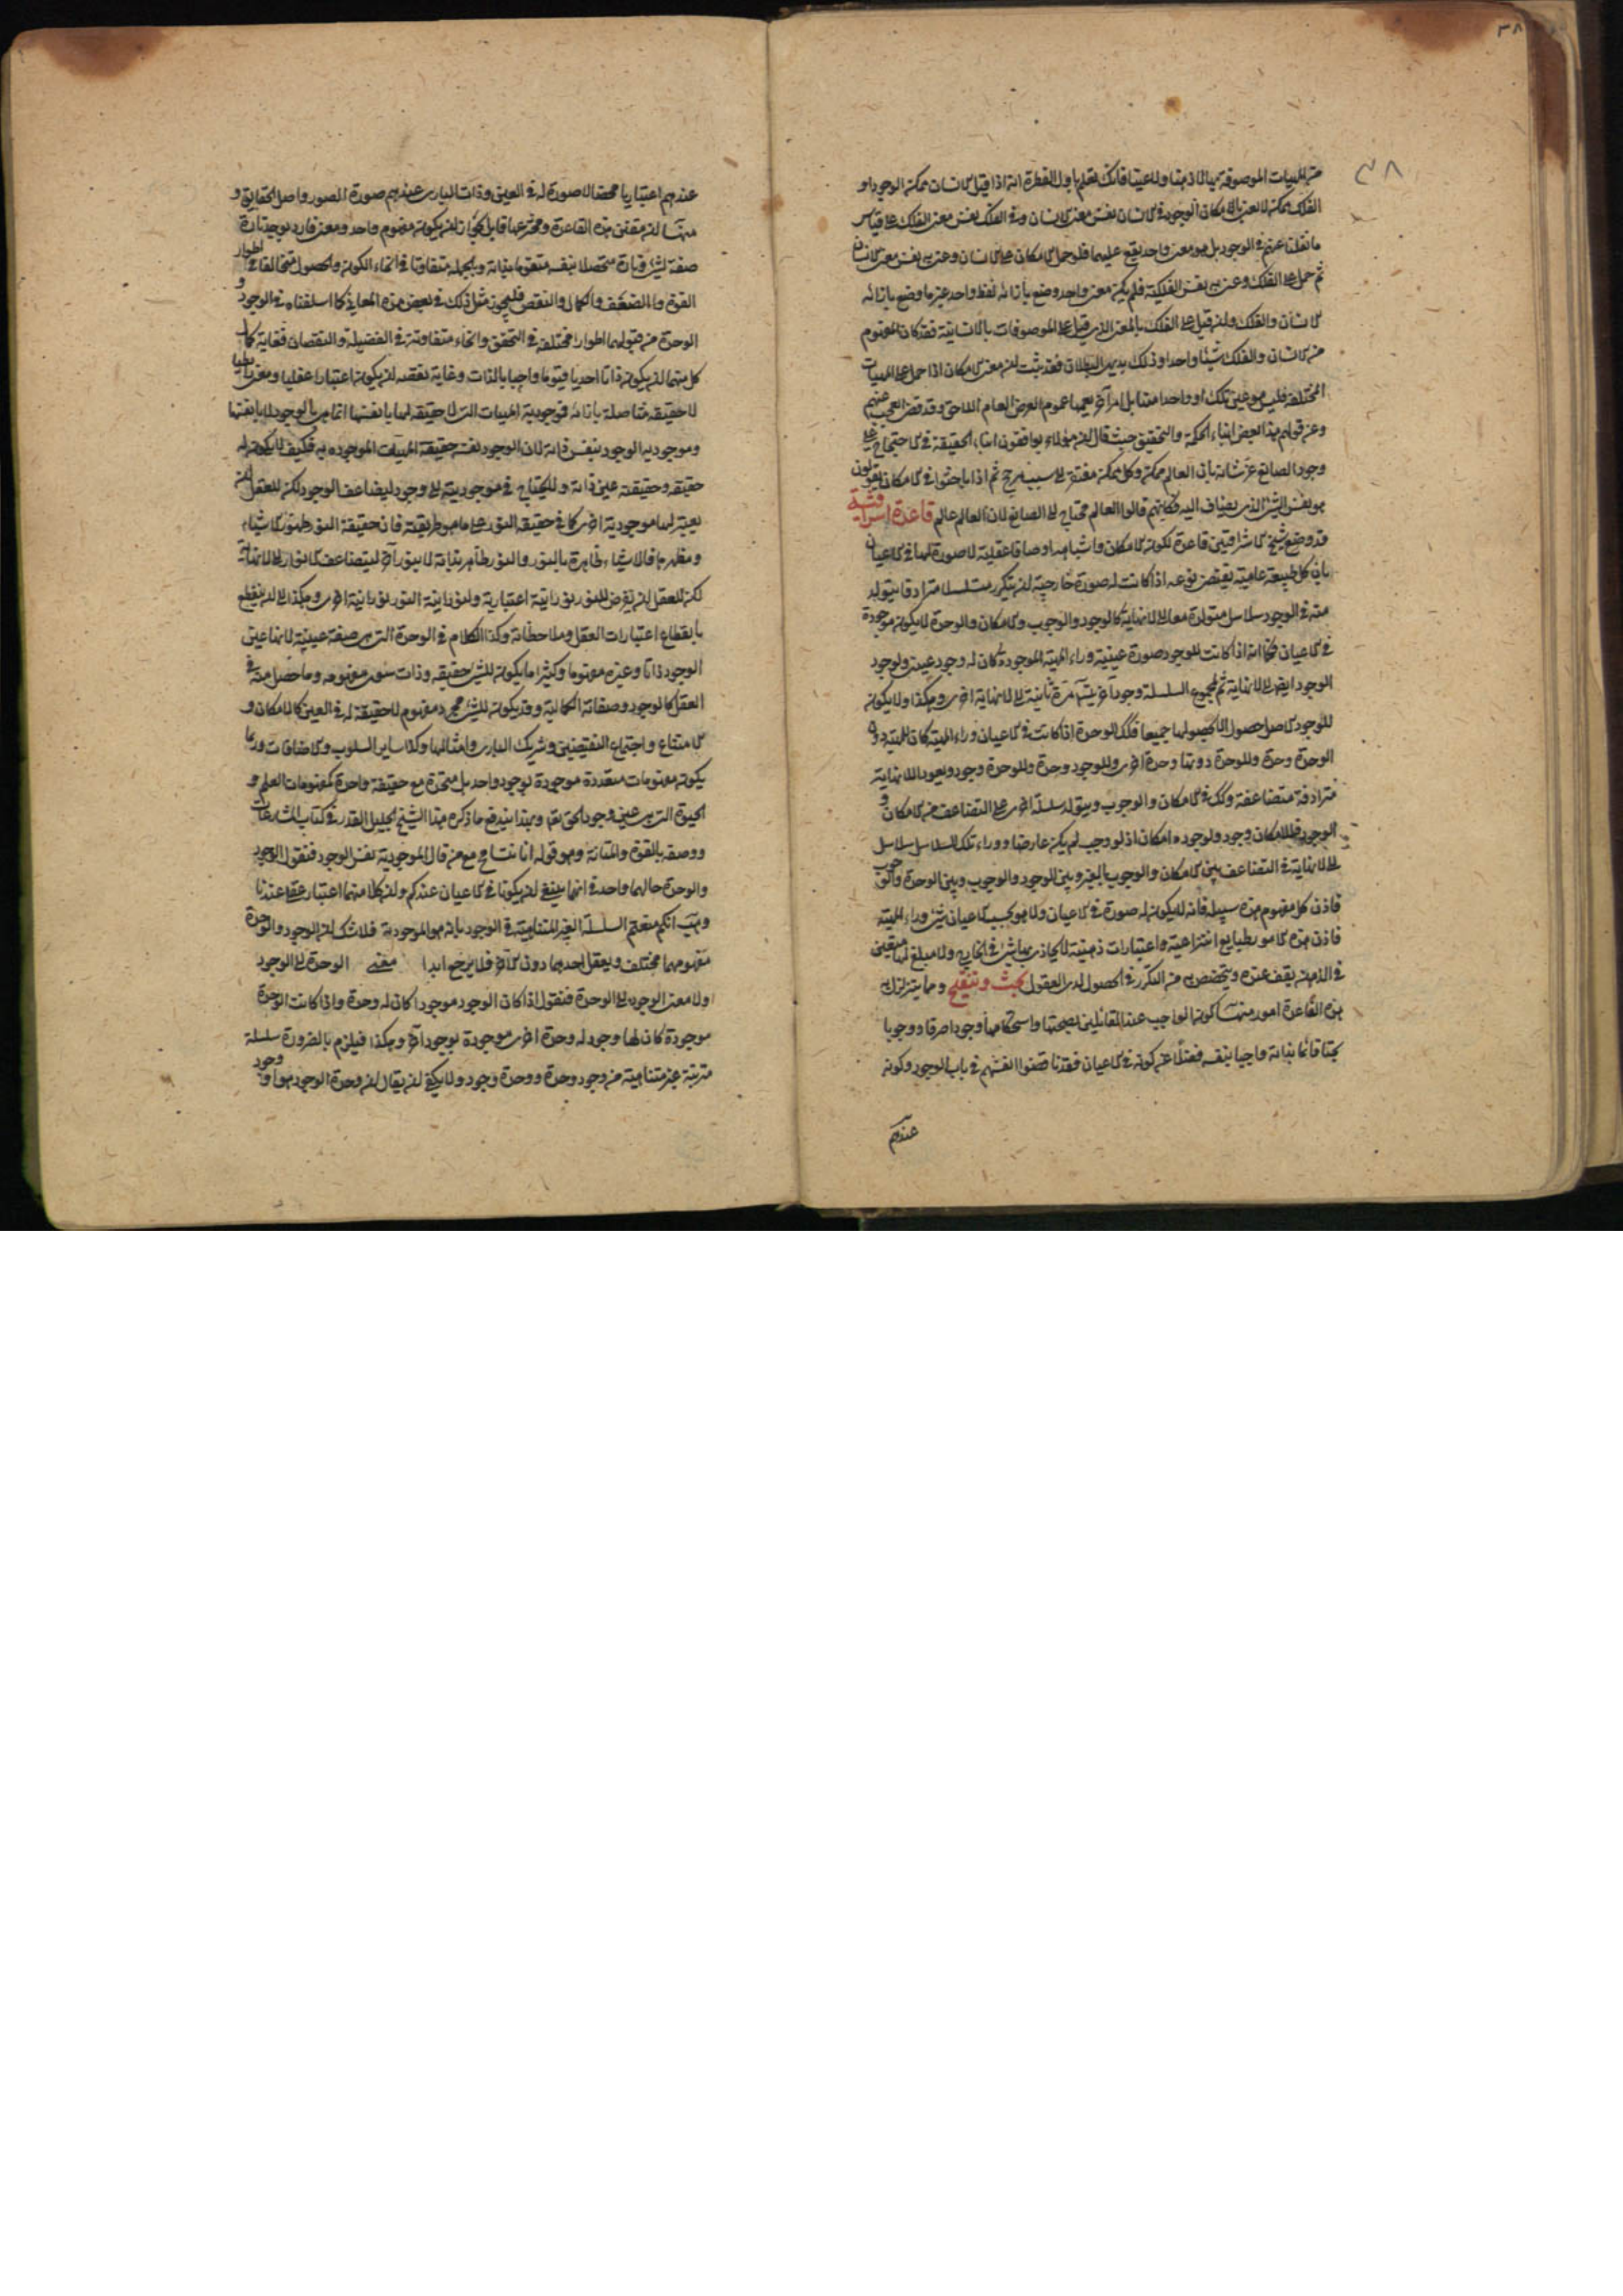 ٣٨
٣٨
من المهيات الموصوفة بها لا ذهنا ولا عينا فانك تعلم باول الفطرة انه اذا قيل الانسان ممكن الوجود او
الفلك ممكن لا يعنى بالامكان الوجود فى الانسان نفس معنى الانسان وفى الفلك نفس معنى الفلك على قياس
ما نقلنا عنهم فى الوجود بل هو معنى واحد يقع عليهما فلو حمل الامكان على الانسان وعنى به نفس معنى الانسان
ثم حمل على الفلك وعنى به نفس الفلكية فلم يكن معنى واحد وضع بازائه لفظ واحد غير ما وضع بازائه
الانسان والفلك ولئن قيل على الفلك بالمعنى الذى قيل على الموصوفات بالانسانية فقد كان المفهوم
من الانسان والفلك شيئا واحدا وذلك بديهى البطلان فقد ثبت ان معنى الامكان اذا حمل على المهيات
المختلفة فليس هو عين تلك او واحدا منها بل امر آخر يعمها عموم العرض العام اللاحق وقد قضى العجب عنهم
وعن قولهم هذا بعض ابناء الحكمة والتحقيق حيث قال ان هؤلاء يوافقون ابناء الحقيقة فى الاحتجاج على
وجود الصانع عز شانه بان العالم ممكن وكل ممكن مفتقر الى سبب مرجح ثم اذا باحثوا فى الامكان يقولون
هو نفس الشئ الذى يضاف اليه فكانهم قالوا العالم محتاج الى الصانع لان العالم عالم قاعدة اشراقية
قد وضع شيخ الاشراقيين قاعدة لكون الامكان واشباهه اوصافا عقلية لا صورة لها فى الاعيان
بان كل طبيعة عامية يقتضى نوعه اذا كانت له صورة خارجية ان يتكرر متسلسلا مترادفا يتولد
منه فى الوجود سلاسل متولدة معا الى لا نهاية كالوجود والوجوب والامكان والوحدة لا يكون موجودة
فى الاعيان فكما انه اذا كانت للوجود صورة عينية وراء المهية الموجودة كان له وجود عينى ولوجود
الوجود ايضا الى لا نهاية ثم لمجموع السلسلة وجود آخر يتسلسل مرة ثانية الى لا نهاية اخرى وهكذا ولا يكون
للوجود الاصل حصول الا بحصولها جميعا فكذلك الوحدة اذا كانت فى الاعيان وراء المهية كان للمهية دون
الوحدة وحدة وللوحدة دونها وحدة اخرى وللوجود وحدة وللوحدة وجود ويعود اللانهاية
مترادفة متضاعفة وكذلك فى الامكان والوجوب ويتولد سلسلة اخرى على التضاعف من الامكان و
الوجود فللامكان وجود ولوجوده امكان اذ لو وجب لم يكن عارضا ووراء تلك السلاسل سلاسل
الى لا نهاية فى التضاعف بين الامكان والوجوب بالغير وبين الوجود والوجوب وبين الوحدة والوجوب
فاذن كل مفهوم هذه سبيله فانه لا يكون له صورة فى الاعيان ولا هو بحسب الاعيان شئ وراء المهية
فاذن هذه الامور طبايع انتزاعية واعتبارات ذهنية لا يحاذى بها شئ فى الخارج ولا مبلغ لها متعين
فى الذهن يقف عنده ويتخصص به من التكرر فى الحصول لدى العقول بحث وتنقيح ومما يتزلزل به
هذه القاعدة امور منها كون الواجب عند القائلين بصحتها واستحكامها وجودا صرفا ووجوبا
بحتا قائما بذاته واجبا بنفسه فضلا عن كونه فى الاعيان فقد ناقضوا انفسهم فى باب الوجود وكونه
عندهم
عندهم اعتباريا محضا لا صورة له فى العين وذات البارى عندهم صورة الصور واصل الحقايق و
منها ان مقنن هذه القاعدة ومخترعها قايل بجواز ان يكون مفهوم واحد ومعنى فارد يوجد تارة
صفة لشئ وتارة متحصلا بنفسه متقوما بذاته وبالجملة متفاوتا فى انحاء الكون والحصول متخالفا فى اطوار
القوة والضعف والكمال والنقص فليجوز مثل ذلك فى بعض هذه المعانى كما اسلفناه فى الوجود و
الوحدة من قبولهما اطوارا مختلفة فى التحقق وانحاء متفاوتة فى الفضيلة والنقصان فغاية كمال
كل منهما ان يكون ذاتا احديا قيوما واجبا بالذات وغاية نقصه ان يكون اعتبارا عقليا ومعنى رابطيا
لا حقيقة متاصلة بازائه فموجودية المهيات التى لا حقيقة لها بانفسها انما هى بالوجود لا بانفسها
وموجودية الوجود بنفس ذاته لان الوجود نفسه حقيقة المهيات الموجودة به فكيف لا يكون له
حقيقة وحقيقته عين ذاته ولا يحتاج فى موجوديته الى وجود ليضاعف الوجود لكن للعقل ان
يعتبر لها موجودية اخرى كما فى حقيقة النور على ما هو طريقته فان حقيقة النور ظهور الاشياء
ومظهرها فالاشياء ظاهرة بالنور والنور ظاهر بذاته لا بنور آخر ليتضاعف الانوار الى لا نهاية
لكن للعقل ان يفرض للنور نورانية اعتبارية ولنورانية النور نورانية اخرى وهكذا الى ان ينقطع
بانقطاع اعتبارات العقل وملاحظاته وكذا الكلام فى الوحدة التى هى صفة عينية لانها عين
الوجود ذاتا وغيره مفهوما وكثيرا ما يكون للشئ حقيقة وذات سوى مفهومه وما حصل منه فى
العقل كالوجود وصفاته الكمالية وقد يكون للشئ مجرد مفهوم لا حقيقة له فى العين كالامكان و
الامتناع واجتماع النقيضين وشريك البارى وامثالها وكذا ساير السلوب والاضافات وربما
يكون مفهومات متعددة موجودة بوجود واحد بل متحدة مع حقيقة واحدة كمفهومات العلم و
الحيوة التى هى عين وجود الحق تعالى وبهذا يندفع ما ذكره هذا الشيخ الجليل القدر فى كتاب المشارعات
ووصفه بالقوة والمتانة وهو قوله انا نتسامح مع من قال الموجودية نفس الوجود فنقول الوجود
والوحدة حالهما واحد فى انهما ينبغى ان يكونا فى الاعيان عندكم وان كلا منهما اعتبار عقلى عندنا
وهب انكم منعتم السلسلة الغير المتناهية فى الوجود بانه هو الموجودية فلا شك ان الوجود والوحدة
مفهومهما مختلف ويعقل احدهما دون الآخر فلا يرجع ابدا معنى الوحدة الى الوجود
ولا معنى الوجود الى الوحدة فنقول اذا كان الوجود موجودا كان له وحدة واذا كانت الوحدة
موجودة كان لها وجود له وحدة اخرى موجودة بوجود آخر وهكذا فيلزم بالضرورة سلسلة
مترتبة غير متناهية من وجود وحدة ووحدة وجود ولا يكفى ان يقال ان وحدة الوجود هو او وجود